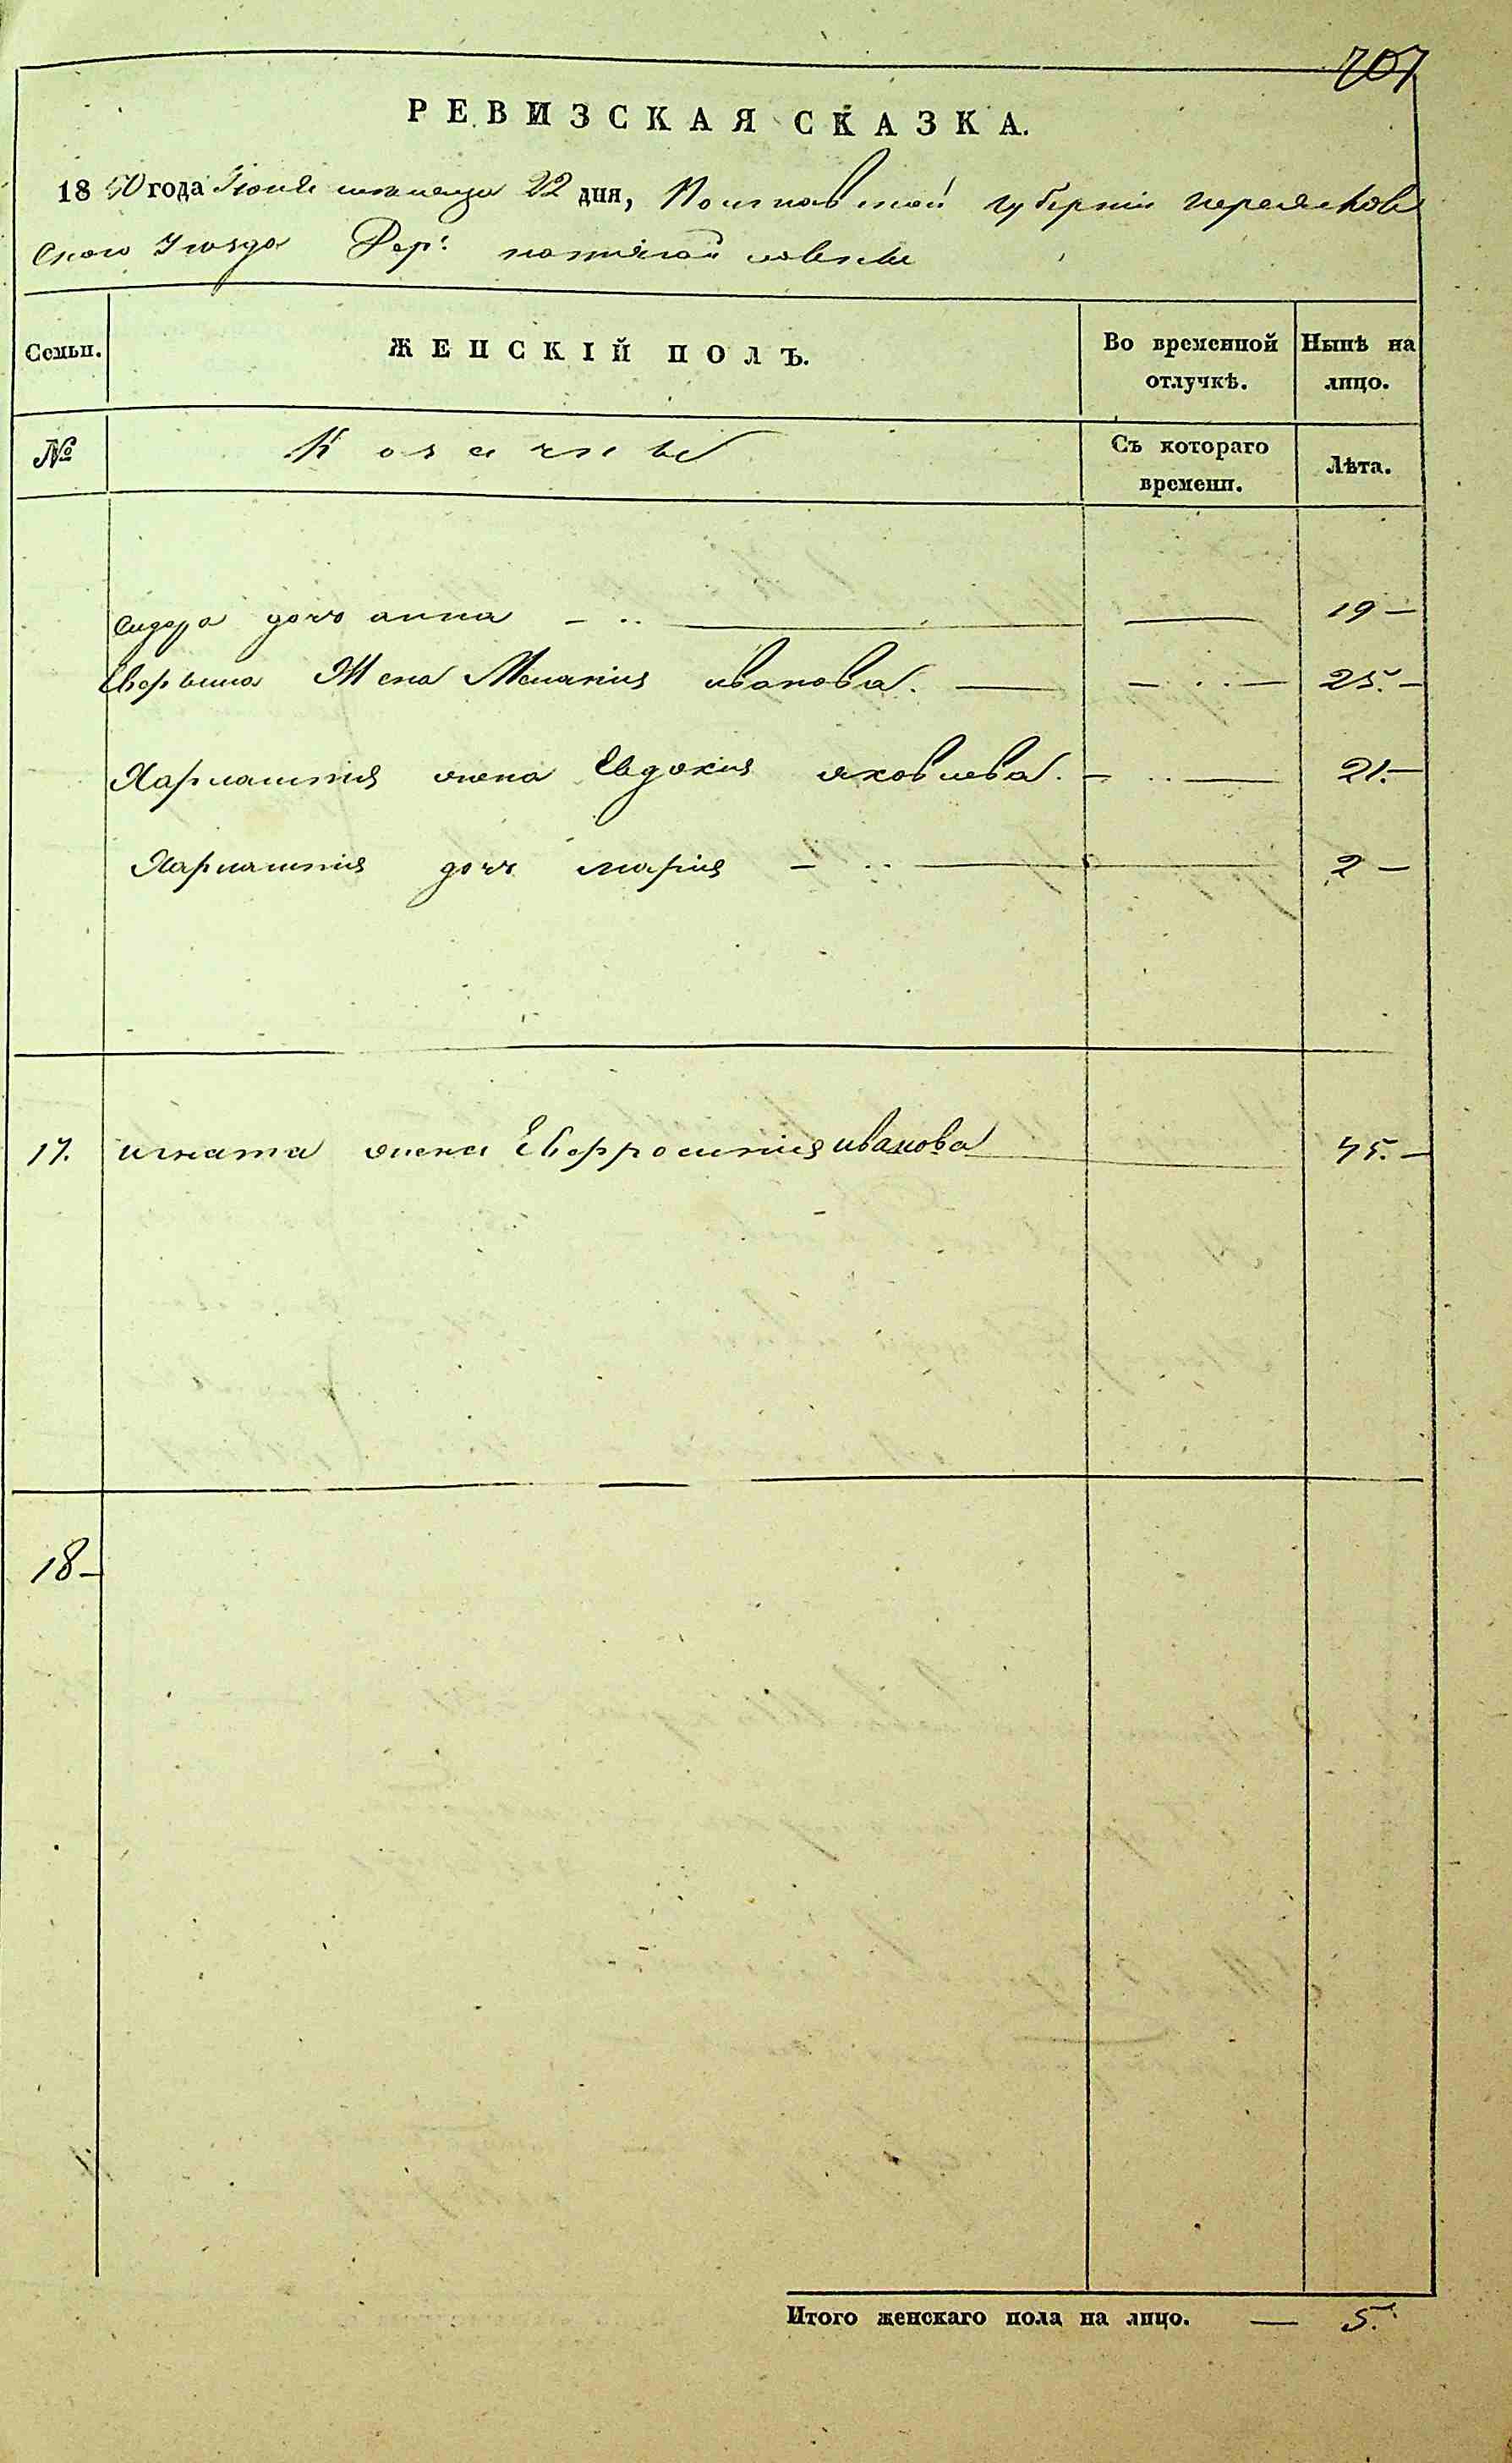 707
РЕВИЗСКАЯ СКАЗКА.
1850 года Іюня месяца 22 дня, Полтавской губерніи переяслов
ского Уезда Дер:
Семьи.
ЖЕНСКІЙ ПОЛЪ.
Во временной отлучкѣ.
Нынѣ на лицо.
№
Козачки
Съ котораго времени.
Лѣта.
Сидора доч анна 19
Жена Меланія иванова. 25.
Харлампія жена Евдокія яковлева. 21.
Харлампія доч марія 2
17. игната жена Евфросинія иванова 45.
18
Итого женскаго пола на лицо. 5.